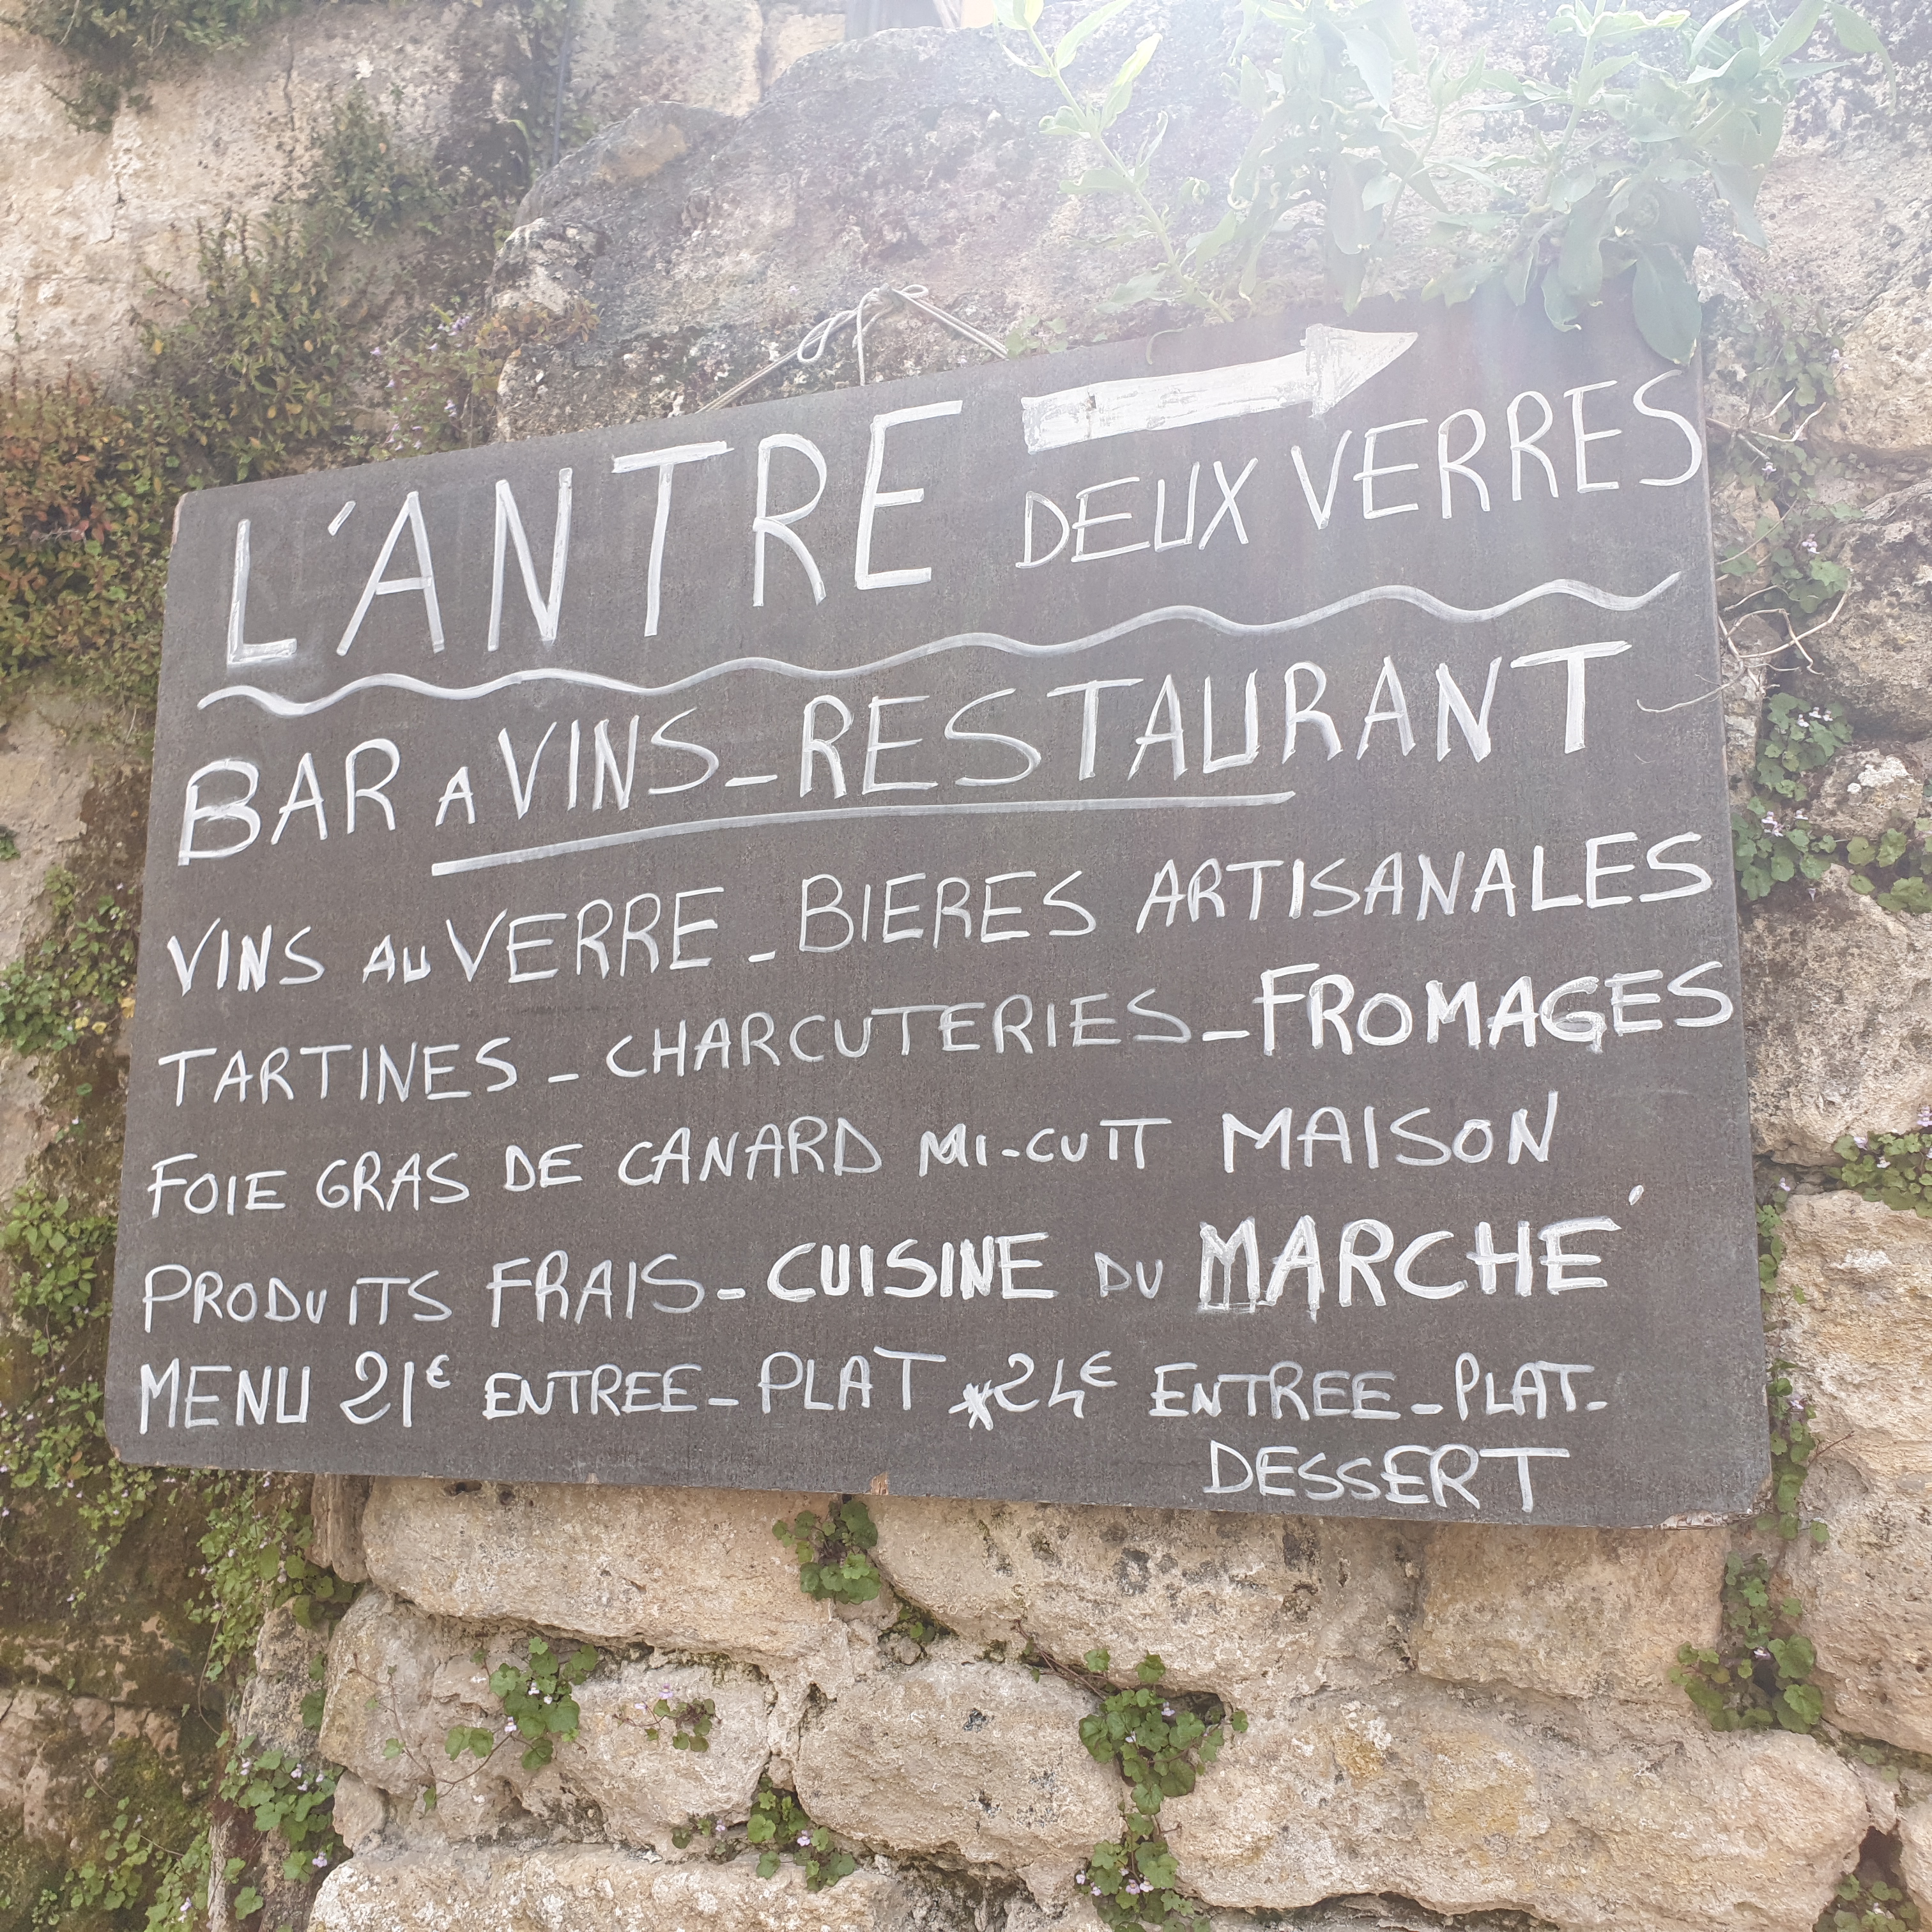 L'ANTRE DEUX VERRES
BAR A VINS - RESTAURANT
VINS AU VERRE - BIERES ARTISANALES
TARTINES - CHARCUTERIES - FROMAGES
FOIE GRAS DE CANARD MI-CUIT MAISON
PRODUITS FRAIS - CUISINE DU MARCHÉ
MENU 21€ ENTREE - PLAT * 24€ ENTREE - PLAT -
DESSERT